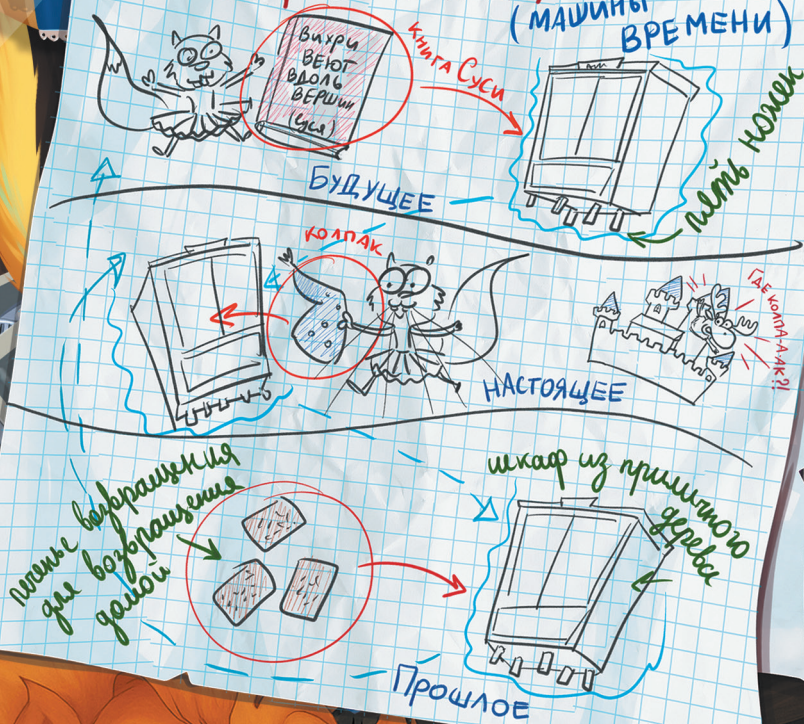 (МАШИНЫ
ВРЕМЕНИ)
ВИХРИ
ВЕЮТ
ВДОЛЬ
ВЕРШИН
(суси)
КНИГА СУСИ
пять ножек
БУДУЩЕЕ
КОЛПАК
ГДЕ КОЛПА-А-АК?!
НАСТОЯЩЕЕ
печенье возвращения
для возвращения
домой
шкаф из приличного
дерева
ПРОШЛОЕ